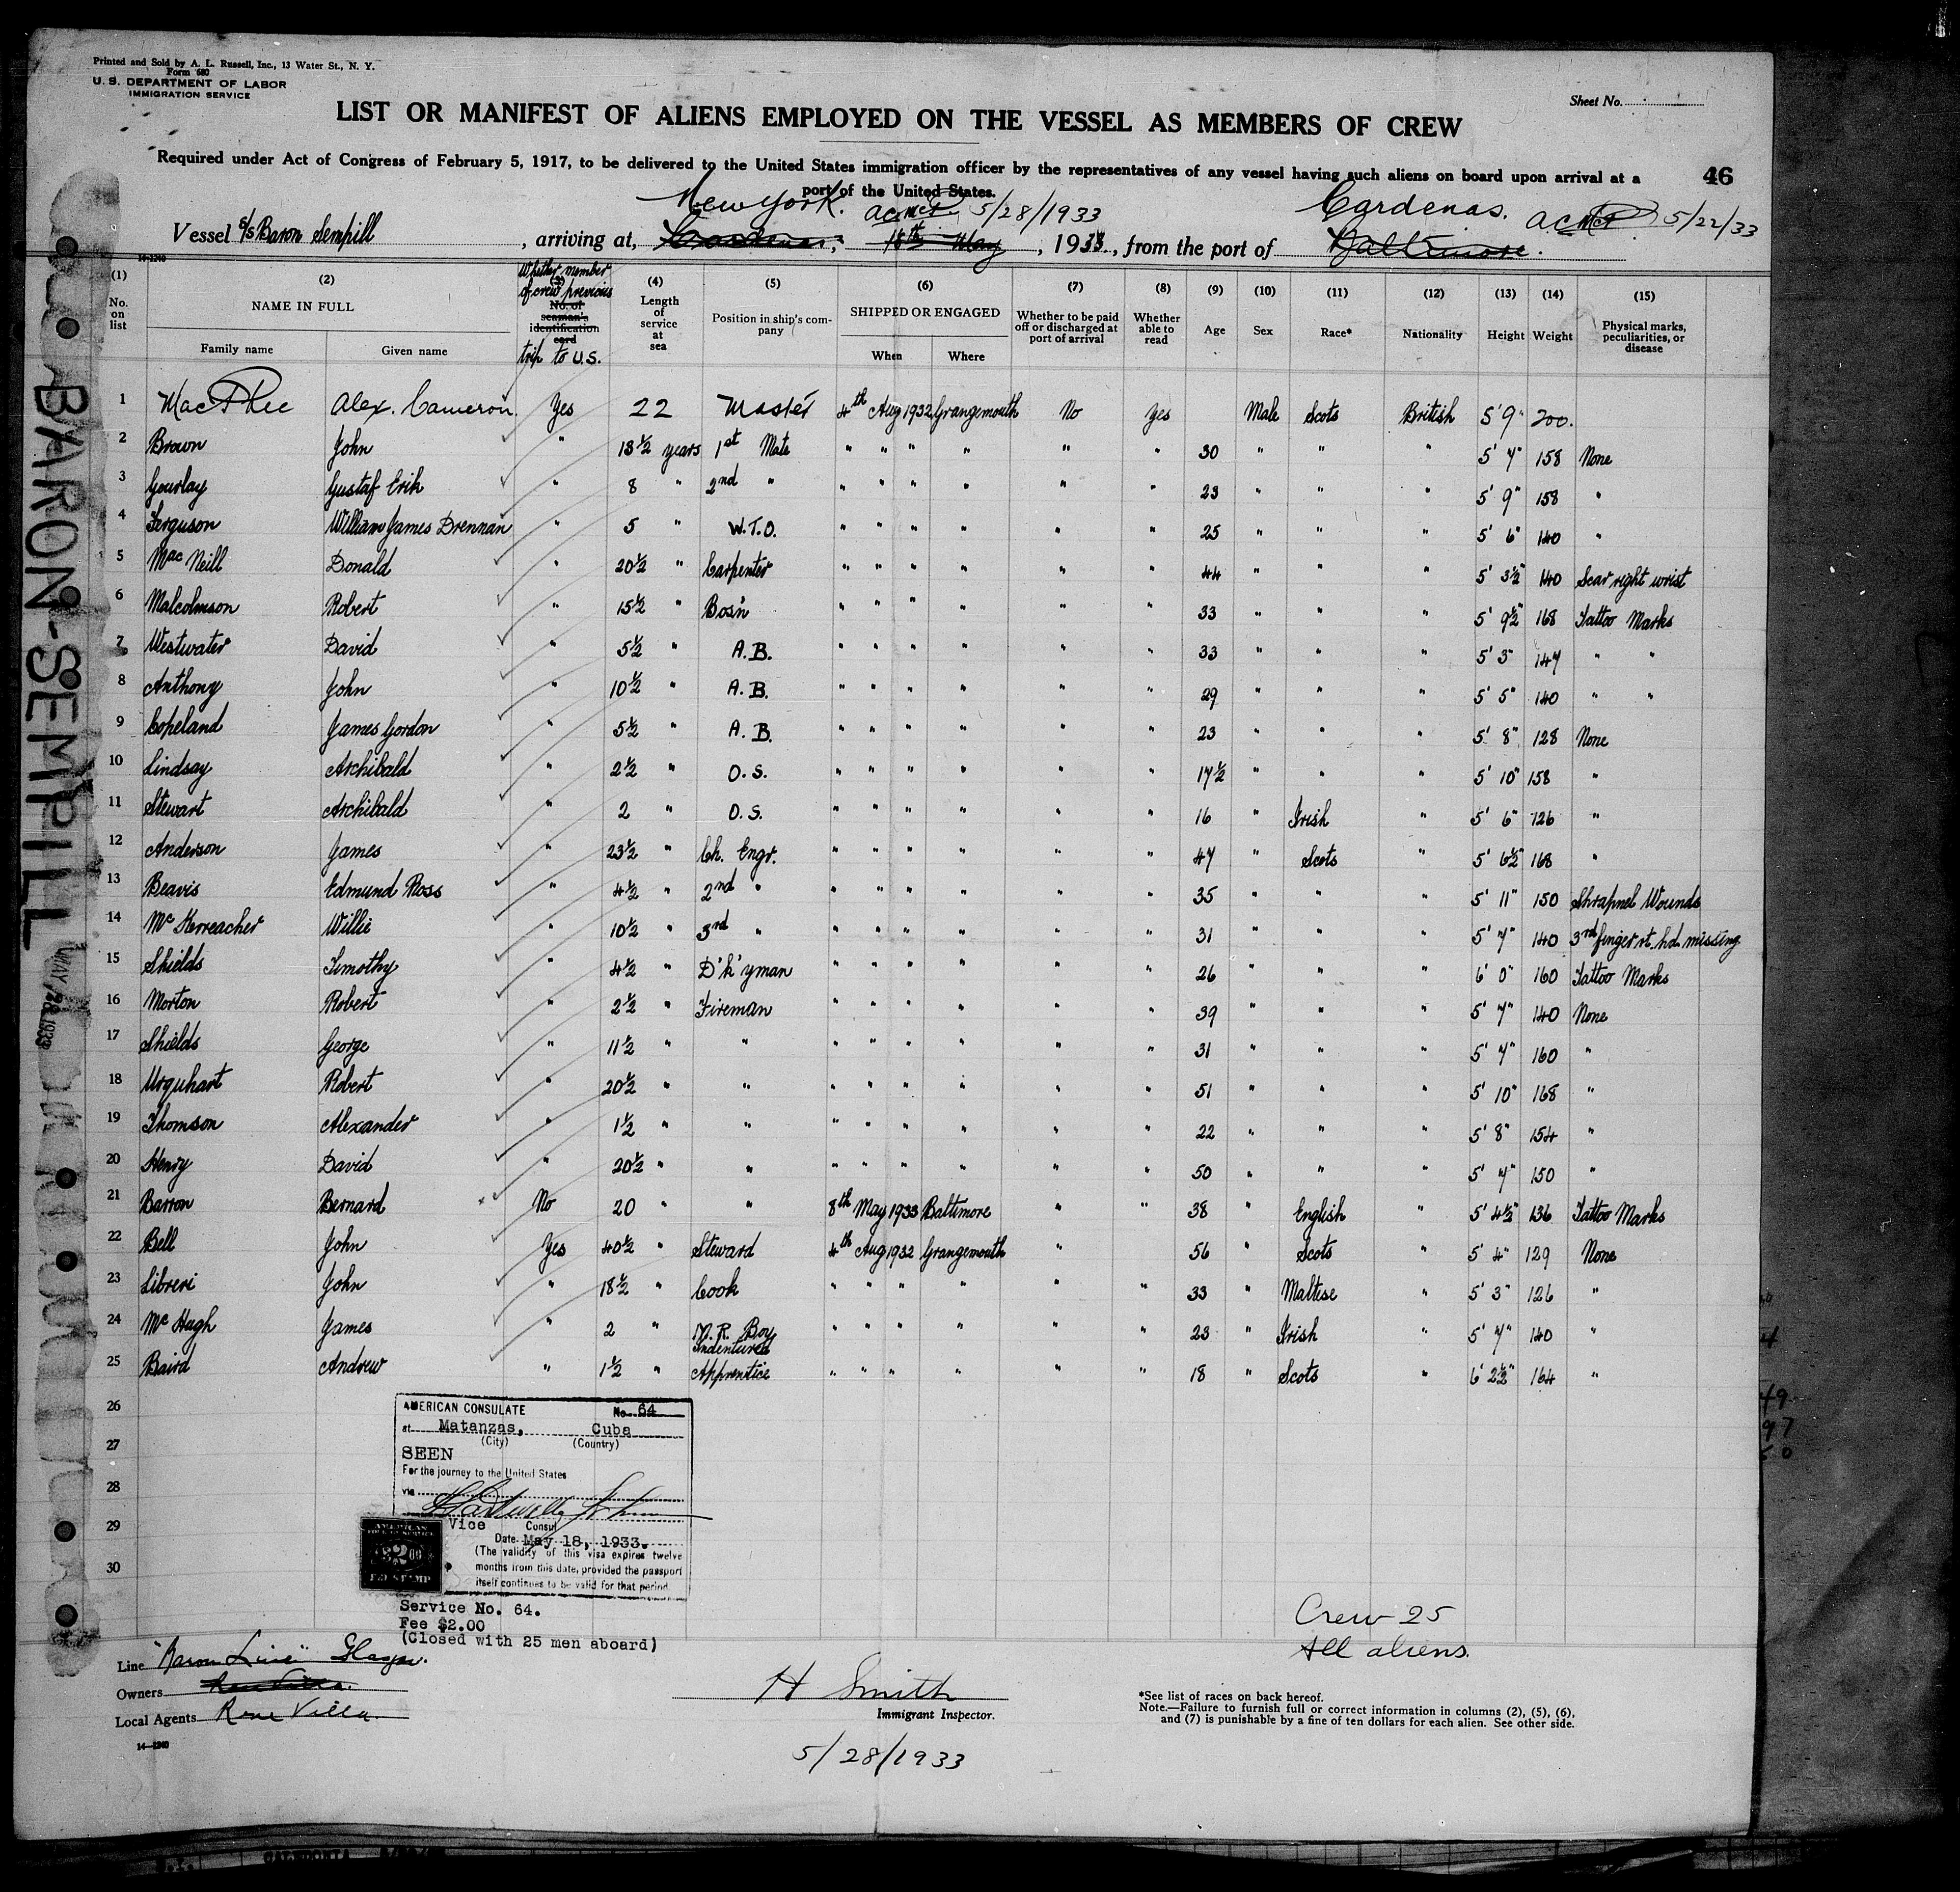 Printed and Sold by A. L. Russell, Inc., 13 Water St., N. Y.
Form 680
U. S. DEPARTMENT OF LABOR
IMMIGRATION SERVICE
Sheet No.
LIST OR MANIFEST OF ALIENS EMPLOYED ON THE VESSEL AS MEMBERS OF CREW
Required under Act of Congress of February 5, 1917, to be delivered to the United States immigration officer by the representatives of any vessel having such aliens on board upon arrival at a
port of the United States.
46
New York. 5/28/1933 Cardenas. 5/22/33
Vessel S/S Baron Sempill, arriving at, Cardenas, 18th May, 1933, from the port of Baltimore.
14-1240
(1) No. on list
(2) NAME IN FULL Family name Given name
Whether member of crew previous trip to U.S. (3) No. of seaman's identification card
(4) Length of service at sea
(5) Position in ship's company
(6) SHIPPED OR ENGAGED When Where
(7) Whether to be paid off or discharged at port of arrival
(8) Whether able to read
(9) Age
(10) Sex
(11) Race*
(12) Nationality
(13) Height
(14) Weight
(15) Physical marks, peculiarities, or disease
1 MacPhee Alex. Cameron. Yes 22 Master 4th Aug 1932 Grangemouth No Yes Male Scots British 5' 9" 200.
2 Brown John " 13½ years 1st Mate " " " " " " 30 " " " 5' 7" 158 None
3 Gourlay Gustaf Erik " 8 " 2nd " " " " " " " 23 " " " 5' 9" 158 "
4 Ferguson William James Drennan " 5 " W.T.O. " " " " " " 25 " " " 5' 6" 140 "
5 MacNeill Donald " 20½ " Carpenter " " " " " " 44 " " " 5' 3½" 140 Scar right wrist
6 Malcolmson Robert " 15½ " Bos'n " " " " " " 33 " " " 5' 9½" 168 Tattoo Marks
7 Westwater David " 5½ " A.B. " " " " " " 33 " " " 5' 3" 147 " "
8 Anthony John " 10½ " A.B. " " " " " " 29 " " " 5' 5" 140 " "
9 Copeland James Gordon " 5½ " A.B. " " " " " " 23 " " " 5' 8" 128 None
10 Lindsay Archibald " 2½ " O.S. " " " " " " 17½ " " " 5' 10" 158 "
11 Stewart Archibald " 2 " O.S. " " " " " " 16 " Irish " 5' 6" 126 "
12 Anderson James " 23½ " Ch. Engr. " " " " " " 47 " Scots " 5' 6½" 168 "
13 Beavis Edmund Ross " 4½ " 2nd " " " " " " " 35 " " " 5' 11" 150 Shrapnel Wounds
14 McKerreacher Willie " 10½ " 3rd " " " " " " " 31 " " " 5' 7" 140 3rd finger rt. hd. missing
15 Shields Timothy " 4½ " D'k'yman " " " " " " 26 " " " 6' 0" 160 Tattoo Marks
16 Morton Robert " 2½ " Fireman " " " " " " 39 " " " 5' 7" 140 None
17 Shields George " 11½ " " " " " " " " 31 " " " 5' 7" 160 "
18 Urquhart Robert " 20½ " " " " " " " " 51 " " " 5' 10" 168 "
19 Thomson Alexander " 1½ " " " " " " " " 22 " " " 5' 8" 154 "
20 Henry David " 20½ " " " " " " " " 50 " " " 5' 7" 150 "
21 Barron Bernard No 20 " " 8th May 1933 Baltimore " " 38 " English " 5' 4½" 136 Tattoo Marks
22 Bell John Yes 40½ " Steward 4th Aug 1932 Grangemouth " " 56 " Scots " 5' 4" 129 None
23 Libreri John " 18½ " Cook " " " " " " 33 " Maltese " 5' 3" 126 "
24 McHugh James " 2 " M.R. Boy " " " " " " 23 " Irish " 5' 7" 140 "
25 Baird Andrew " 1½ " Indentured Apprentice " " " " " " 18 " Scots " 6' 2½" 164 "
26
27
28
29
30
BARON-SEMPILL
MAY 28 1933
AMERICAN CONSULATE No. 64
at Matanzas, Cuba
(City) (Country)
SEEN
For the journey to the United States
via
Vice Consul
Date May 18, 1933.
(The validity of this visa expires twelve
months from this date, provided the passport
itself continues to be valid for that period.
AMERICAN
FEE STAMP
Service No. 64.
Fee $2.00
(Closed with 25 men aboard)
Crew 25
All aliens.
Line "Baron Line" Glasgow.
Owners Rene Villa.
Local Agents Rene Villa.
14-1240
H Smith
Immigrant Inspector.
5/28/1933
*See list of races on back hereof.
Note.—Failure to furnish full or correct information in columns (2), (5), (6),
and (7) is punishable by a fine of ten dollars for each alien. See other side.
49
97